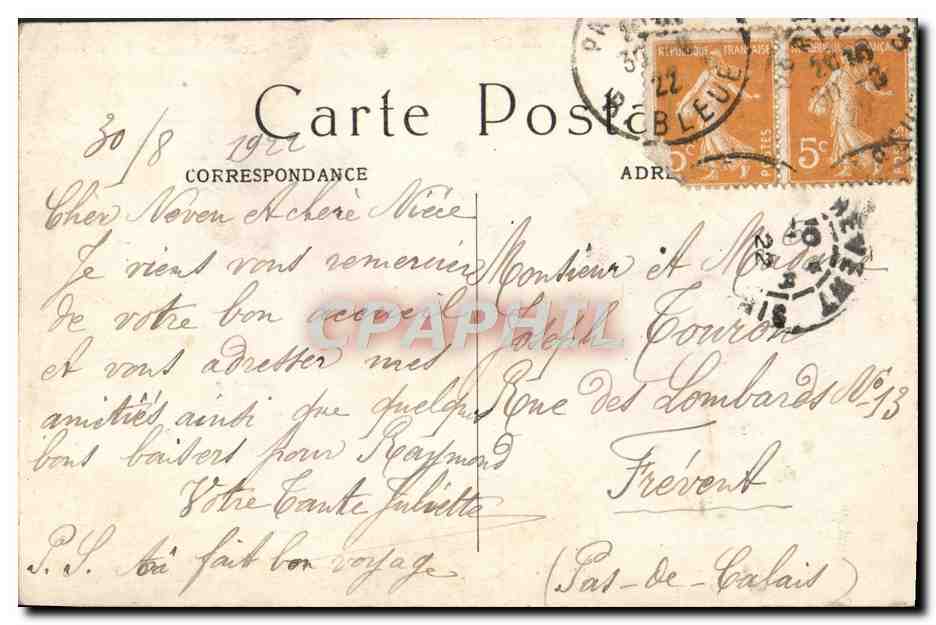 Carte Posta
30/8 1922
CORRESPONDANCE
Cher Neveu et chère Nièce
Je viens vous remercier
de votre bon accueil
et vous adresser mes
amitiés ainsi que quelques
bons baisers pour Raymond
Votre Tante Juliette
P.S. fait bon voyage
ADRE
Monsieur et Mada
Joseph Touron
Rue des Lombards No 13
Frévent
(Pas-de-Calais)
REPUBLIQUE FRANÇAISE
POSTES
5c
5c
POSTES
PA
22
BLEUE
FREVENT
22
CPAPHIL